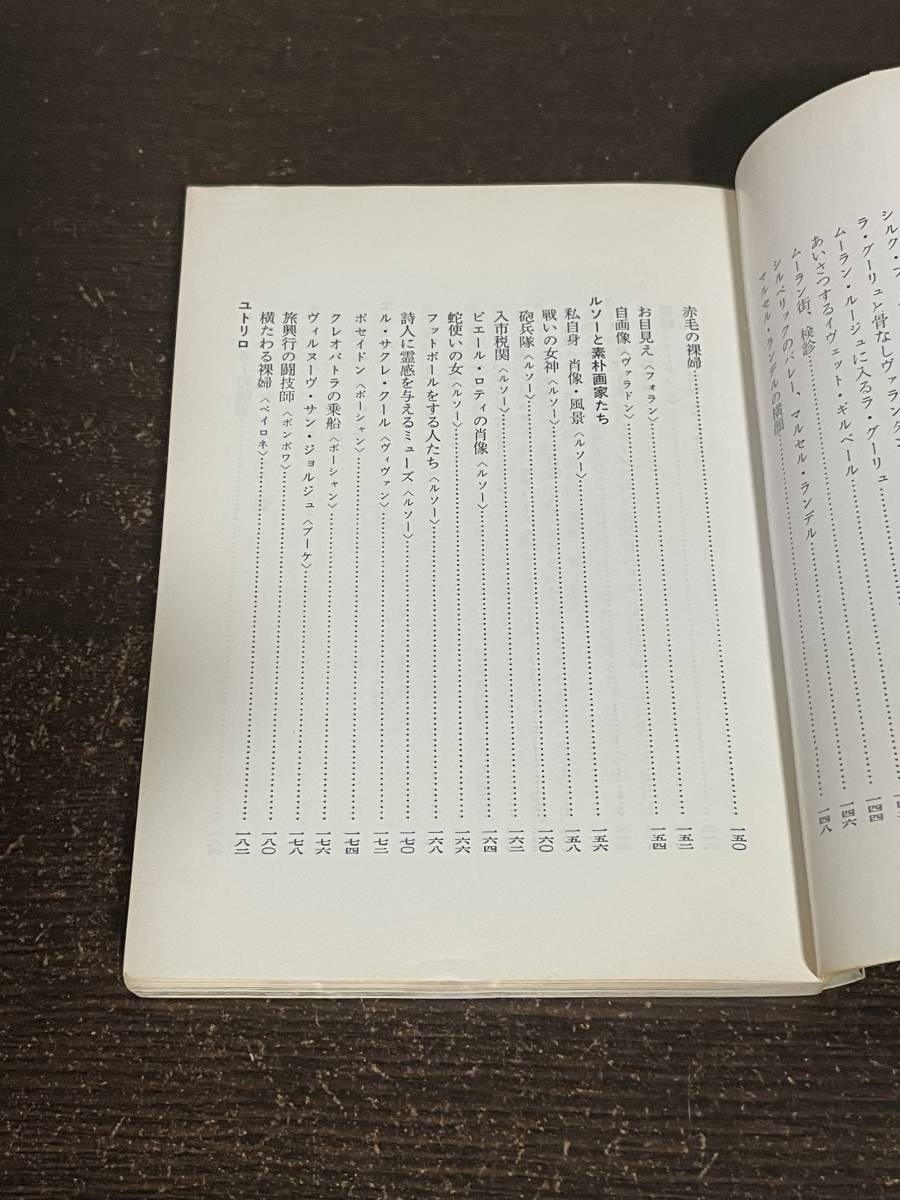 シルク・
ラ・グーリュと骨なしヴァランタン
ムーラン・ルージュに入るラ・グーリュ
あいさつするイヴェット・ギルベール……一四四
ムーラン街、検診……一四六
シルペリックのバレー、マルセル・ランデル……一四八
マルセル・ランデルの横顔
赤毛の裸婦……一五〇
お目見え〈フォラン〉……一五二
自画像〈ヴァラドン〉……一五四
ルソーと素朴画家たち
私自身 肖像・風景〈ルソー〉……一五六
戦いの女神〈ルソー〉……一五八
砲兵隊〈ルソー〉……一六〇
入市税関〈ルソー〉……一六二
ピエール・ロティの肖像〈ルソー〉……一六四
蛇使いの女〈ルソー〉……一六六
フットボールをする人たち〈ルソー〉……一六八
詩人に霊感を与えるミューズ〈ルソー〉……一七〇
ル・サクレ・クール〈ヴィヴァン〉……一七二
ポセイドン〈ボーシャン〉……一七四
クレオパトラの乗船〈ボーシャン〉……一七六
ヴィルヌーヴ・サン・ジョルジュ〈ブーケ〉……一七八
旅興行の闘技師〈ボンボワ〉……一八〇
横たわる裸婦〈ペイロネ〉……一八二
ユトリロ